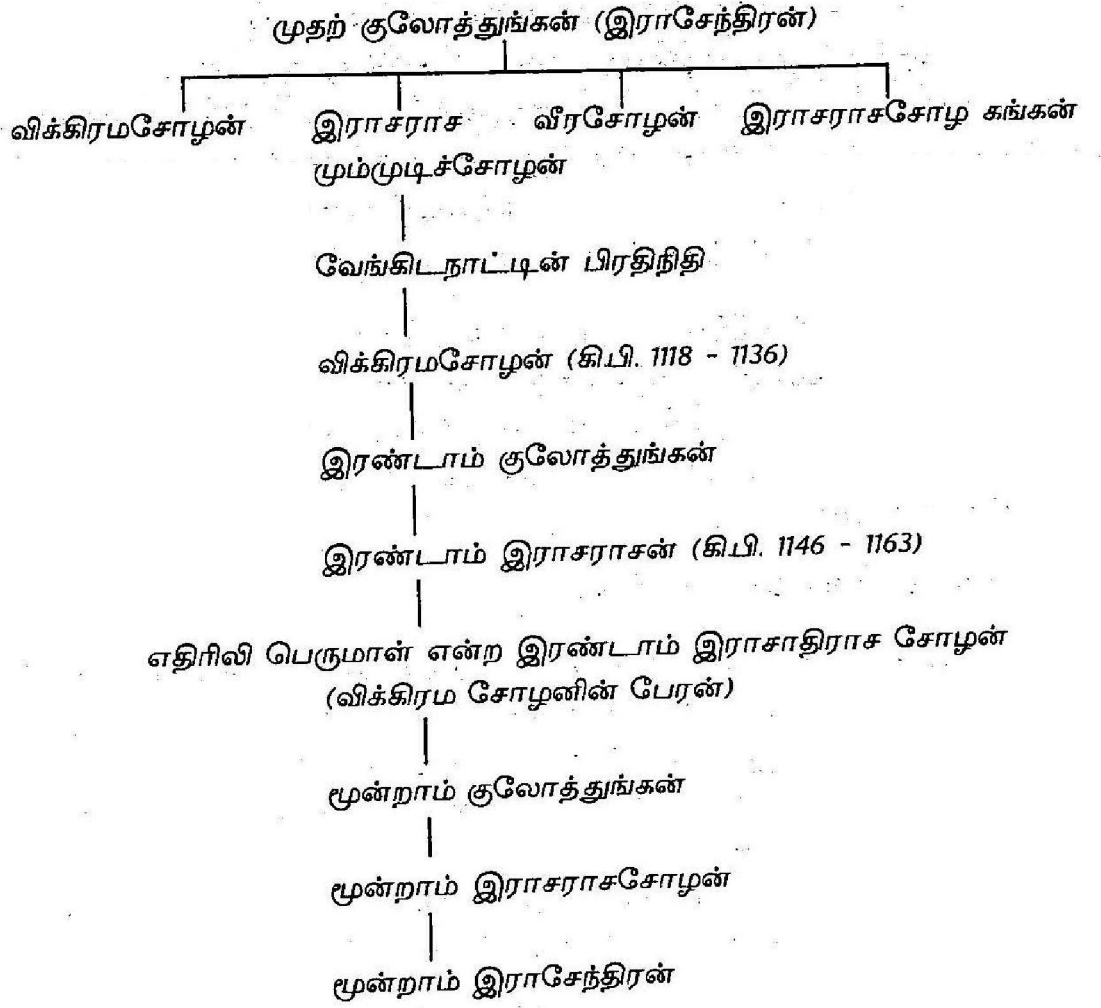 முதற் குலோத்துங்கன் (இராசேந்திரன்)
விக்கிரமசோழன் இராசராச வீரசோழன் இராசராசசோழ கங்கன்
மும்முடிச்சோழன்
வேங்கிடநாட்டின் பிரதிநிதி
விக்கிரமசோழன் (கி.பி. 1118 - 1136)
இரண்டாம் குலோத்துங்கன்
இரண்டாம் இராசராசன் (கி.பி. 1146 - 1163)
எதிரிலி பெருமாள் என்ற இரண்டாம் இராசாதிராச சோழன்
(விக்கிரம சோழனின் பேரன்)
மூன்றாம் குலோத்துங்கன்
மூன்றாம் இராசராசசோழன்
மூன்றாம் இராசேந்திரன்